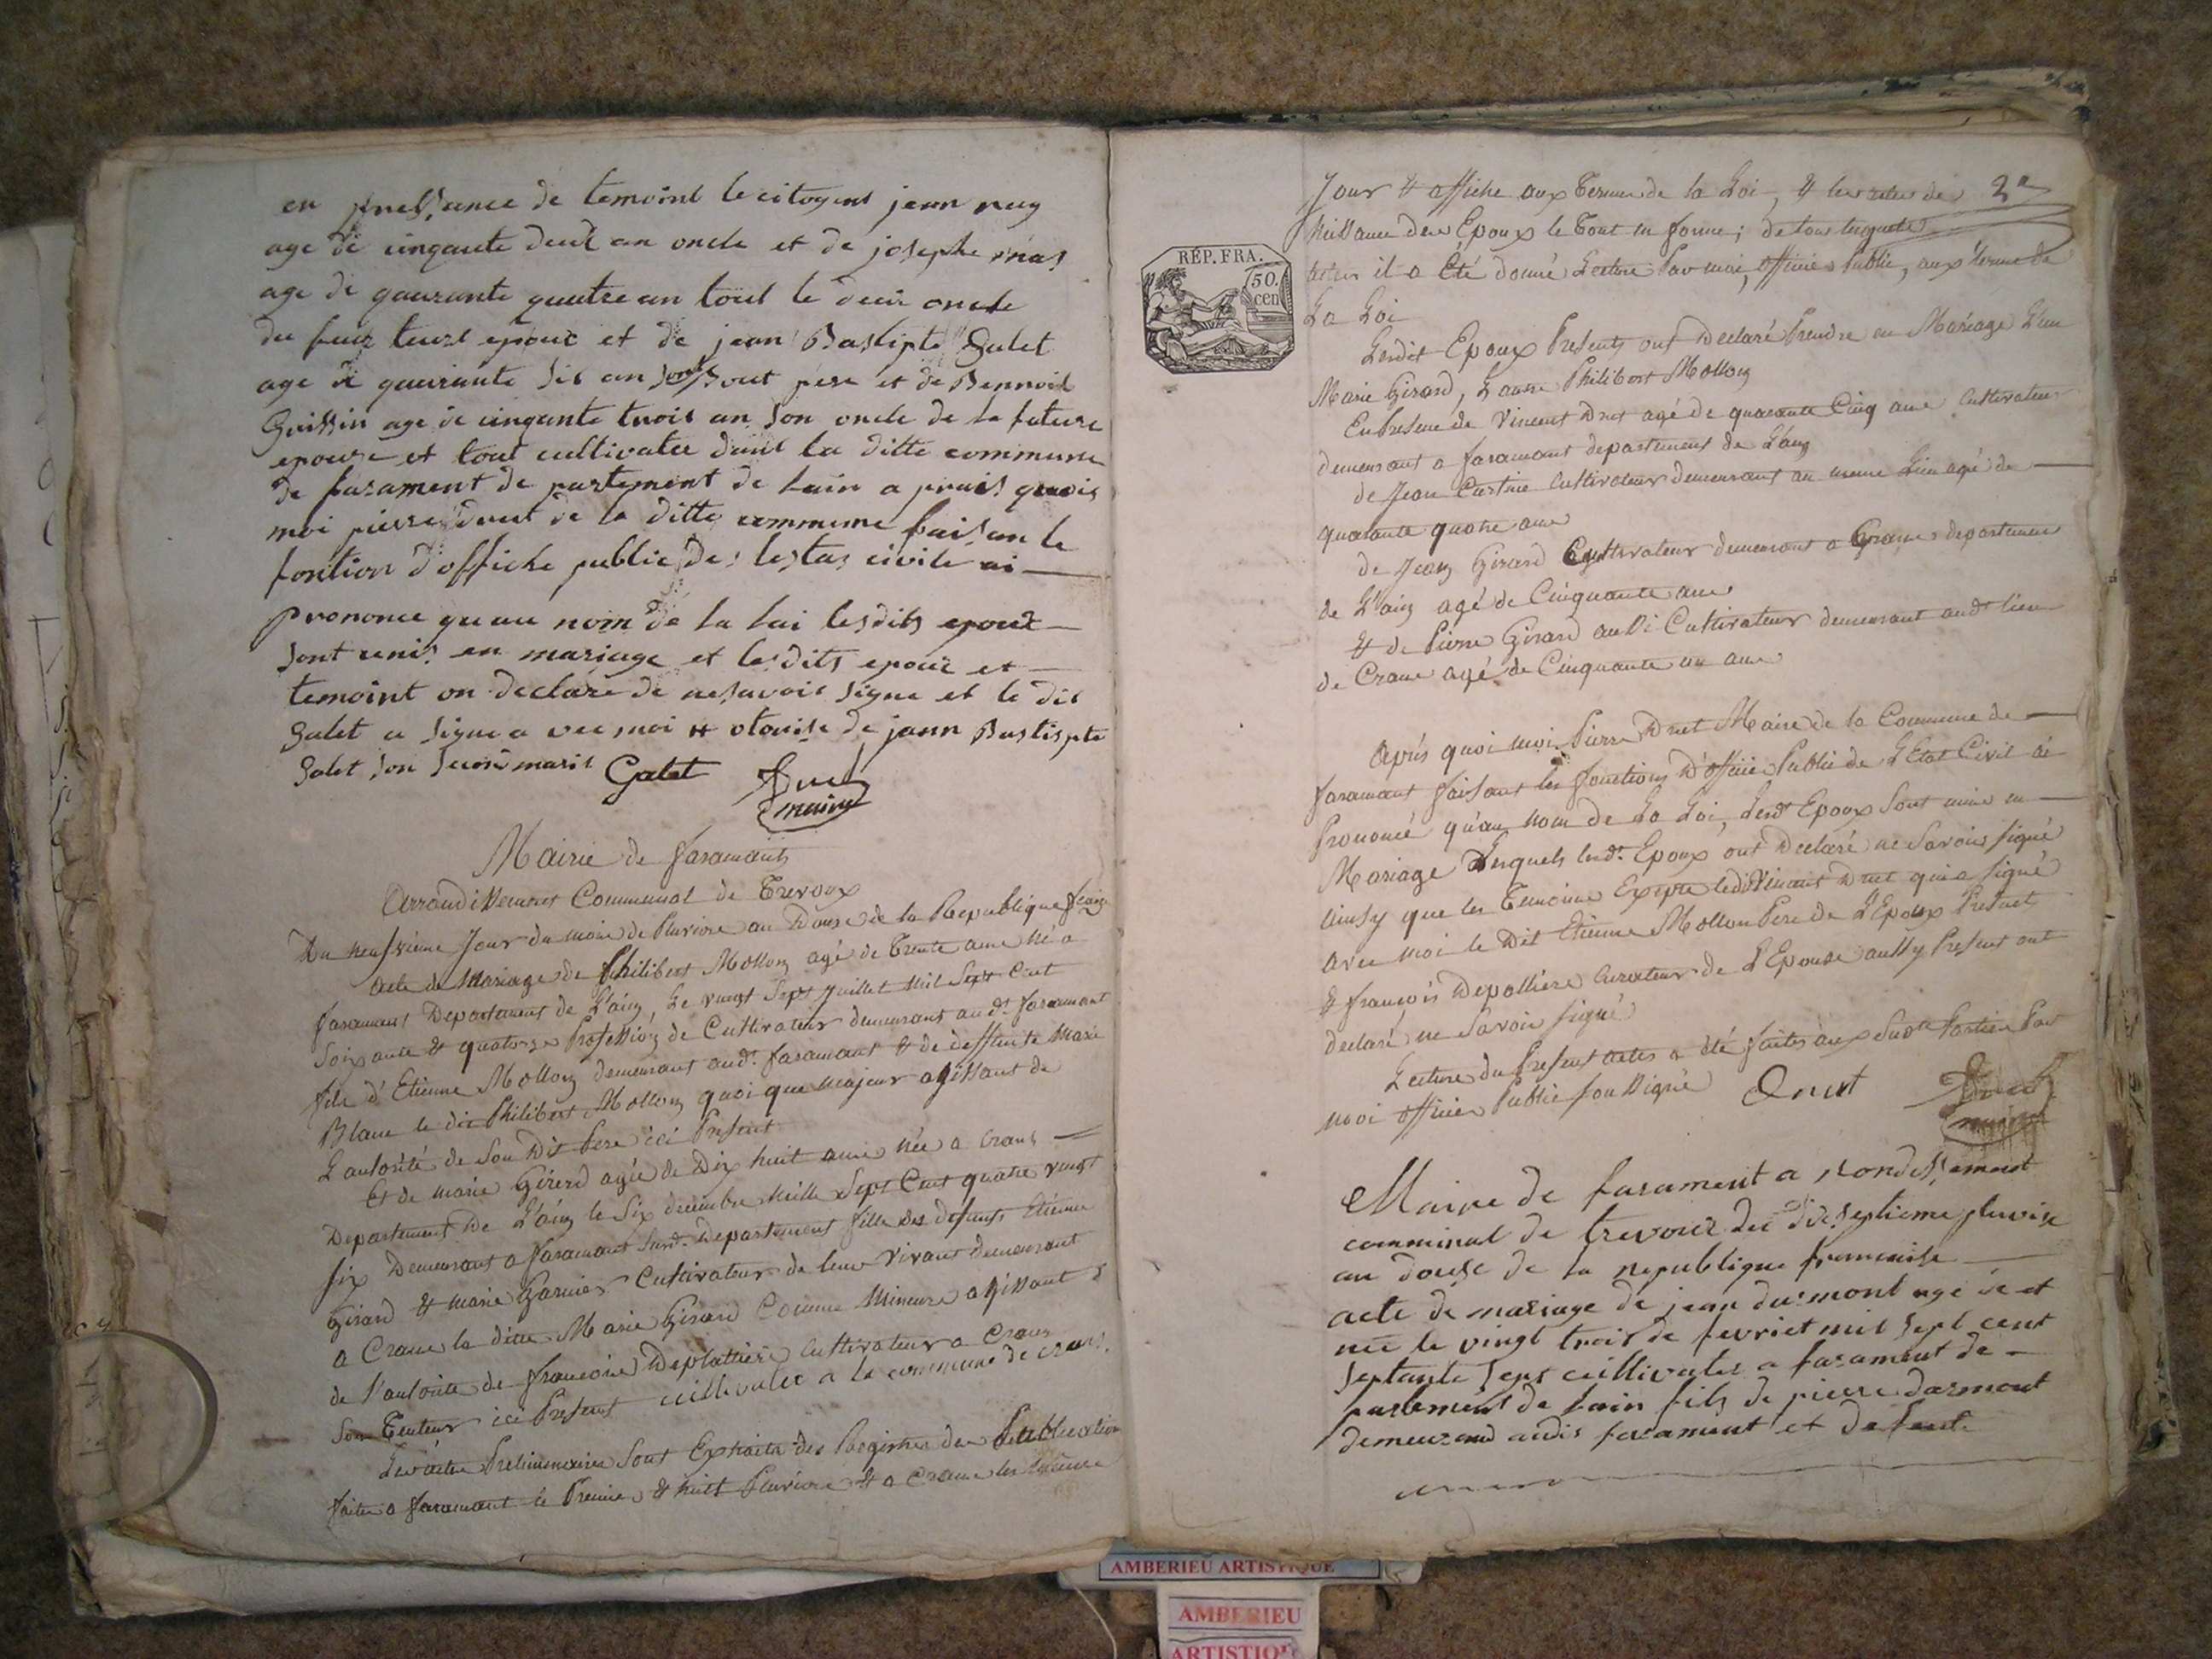 en pressance de temoint le citoyent jean rey
age de cinqante deux an oncle et de josephe mas
age de qaurante quatre an tout le deux oncle
du feur teurs epouc et de jean Bastipte Galet
age de qaurante sis an son Bout pere et de Bennoit
Guissin age de cinqante trois an son oncle de la future
epouse et tout cultivater dans la ditte commune
de faramént de partement de lain a prais quois
moi pierre druet de la ditte commune faisan le
fontion d'offiche public des lestas civile ai
prononce qu au nom de la lai lesdits epoux
sont unis en mariage et les dits epoux et
temoint on declare de ne savoir signe et le dit
Galet a signe a vec moi et otorise de jann Bastispte
Galet son secon maris Galet Druet
maire
Mairie de faramant
Arrondissement Communal de Trevoux
Du neufvième Jour du mois de Pluviose an Douze de la Republique
acte de Mariage de Philibert Mollon agé de Trente ans né a
faramant Departement de L'ain, le vingt Sept Juillet mil Sept Cent
Soixante & quatorze Profession de Cultivateur demeurant aud.t faramant
fils d'Etienne Mollon demeurant aud.t faramant & de deffunte Marie
Blanc le dit Philibert Mollon quoi que majeur agissant de
L'autorité de Son Dit Pere ici Present
Et de marie Girerd agée de Dix huit ans née a Crans
Departement De L'ain le Six decembre Mille Sept Cent quatre vingt
six Demeurant a faramant Surd. Departement fille des defunts Etienne
Girard & marie Garnier Cultivateur de leur Vivant demeurant
a Crans la ditte Marie Girard Comme Mineure agissant
de l'autorite de francois Deplattière Cultivateur a Crans
Son Tuteur ici Present cultivater a la commune de crans.
Les actes Preliminaires Sont Extraits des Registres des Publication
faites a faramant le Premier & huit Pluviose & a Crans les même
2e
Jour & affiche aux Termes de la Loi, & les actes de
Naissance des Epoux le Tout en forme; de tous lesquels
actes il a Eté donné Lecture Par moi, officier Public, aux termes de
La Loi
Lesdit Epoux Presents ont Declaré Prendre en Mariage L'un
Marie Girard, L'autre Philibert Mollon
En Presence de Vincent Druet agé de quarante Cinq ans Cultivateur
demeurant a faramant departement de L'ain
de Jean Cultivateur demeurant au meme Lieu agé de
quarante quatre ans
de Jean Girard Cultivateur demeurant a Crans departement
de L'ain agé de Cinquante ans
& de Pierre Girard aussi Cultivateur demeurant aud.t lieu
de Crans agé de Cinquante un ans
Après quoi moi Pierre Druet Maire de la Commune de
faramant faisant les fonctions D'officier Public de L'Etat Civil ai
Prononcé qu'au Nom de La Loi, Lesd.t Epoux Sont unis en
Mariage Lesquels lesd.t Epoux ont Declaré ne Savoir signé
ainsy que les Temoins Excepte ledit Vincent Druet qui a signé
avec moi le Dit Etienne Mollon Pere de L'Epoux Present
& françois Depallière Curateur de L'Epouse aussy Present ont
declaré ne Savoir signé
Lecture du Present actes a été faites aux Susd.tes Parties Par
moi officier Public soussigné Druet Druet
maire
Mairie de farament a rondissement
comminal de trevoux du dis septieme pluvise
an douse de la republique francaise
acte de mariage de jean durmont age de et
née le vingt trois de fevriet mil sept cent
septante sept cultivater a farament de
partement de l'ain fils de pierre darmont
demeurand audis farament et de feue
RÉP. FRA.
50.
cen.
AMBERIEU ARTISTIQUE
AMBERIEU
ARTISTIQUE